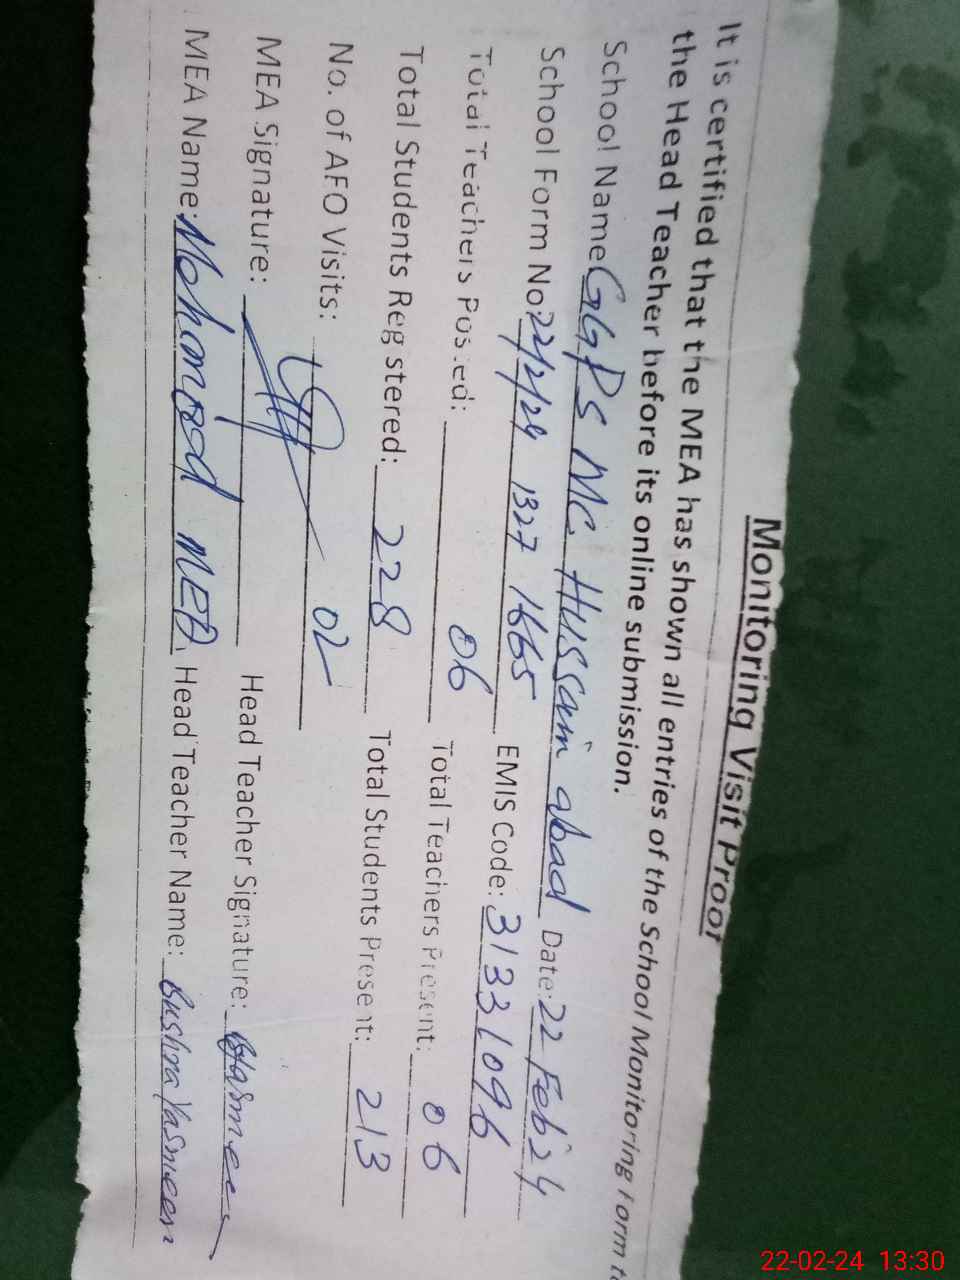 Monitoring Visit Proof
It is certified that the MEA has shown all entries of the School Monitoring Form to
the Head Teacher before its online submission.
School Name GGPS MC Hussain abad Date: 22 Feb 24
School Form No: 22/2/24 1327 1665 EMIS Code: 31331096
Total Teachers Posted: 06 Total Teachers Present: 06
Total Students Registered: 228 Total Students Present: 213
No. of AEO Visits: 02
MEA Signature: Head Teacher Signature:
MEA Name: Mehmood Head Teacher Name: Bushra Yasmeen
22-02-24 13:30